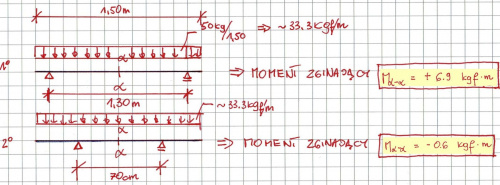 1,50m
50kg/1,50 ⇒ ~33.3kgf/m
α
1° ⇒ MOMENT ZGINAJĄCY Mα-α = + 6.9 kgf·m
α
1,30m
~33.3kgf/m
α
2° ⇒ MOMENT ZGINAJĄCY Mα-α = - 0.6 kgf·m
α
70cm